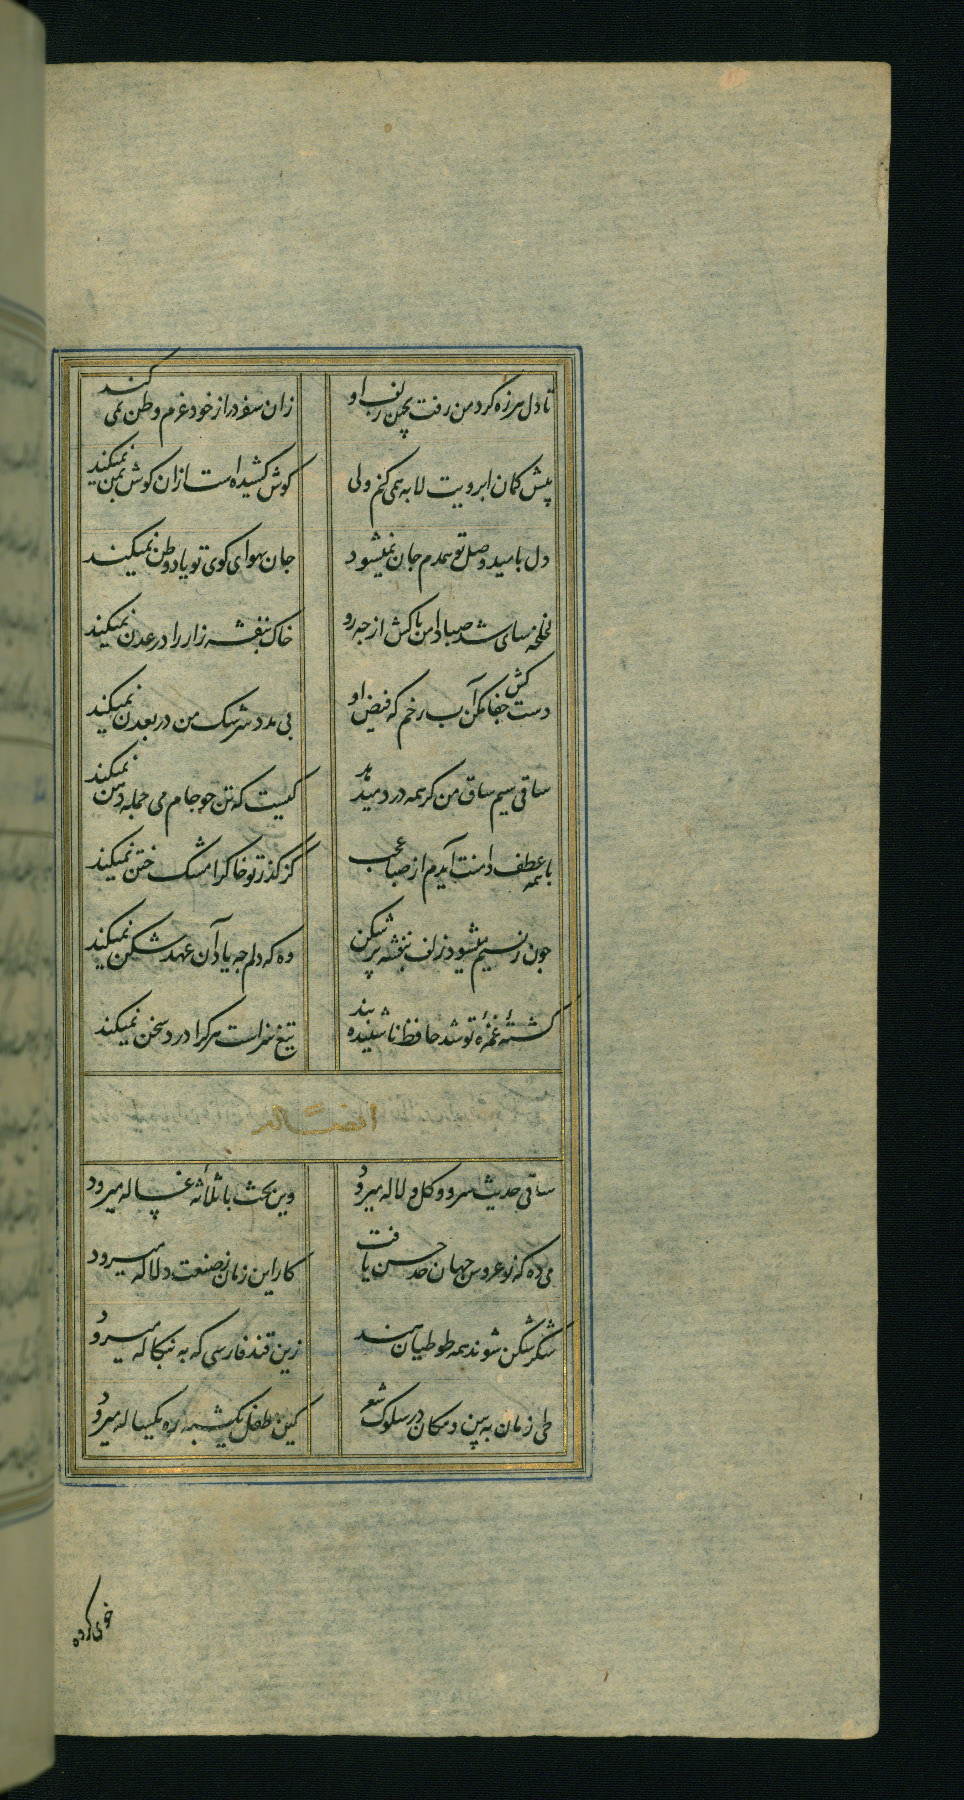 تا دل هرزه کرد من رفت بچین زلف او
زان سفر دراز خود عزم وطن نمی کند
پیش کمان ابرویت لابه همی کنم ولی
کوش کشیده است ازان کوش بمن نمیکند
دل بامید وصل تو همدم جان نمیشود
جان بهوای کوی تو یاد وطن نمیکند
لخلخه سای شد صبا دامن پاکش از چه رو
خاک بنفشه زار را در عدن نمیکند
دست کش جفا مکن آب رخم که فیض او
بی مدد سرشک من در بعدن نمیکند
ساقی سیم ساق من کر همه درد میدهد
کیست که تن چو جام می جمله دهن نمیکند
با همه عطف دامنت آیدم از صبا عجب
کز کذر تو خاکرا مشک ختن نمیکند
چون ز نسیم میشود زلف بنفشه پر شکن
وه که دلم چه یاد آن عهد شکن نمیکند
کشتهٔ غمزهٔ تو شد حافظ ناشنیده پند
تیغ سزاست هر کرا درد سخن نمیکند
ساقی حدیث سرو و کل و لاله میرود
وین بحث با ثلاثه غساله میرود
می ده که نو عروس جهان حد حسن یافت
کار این زمان ز صنعت دلاله میرود
شکر شکن شوند همه طوطیان هند
زین قند فارسی که به بنکاله میرود
طی زمان به بین و مکان در سلوک شعر
کین طفل یکشبه ره یکساله میرود
خوی کرده